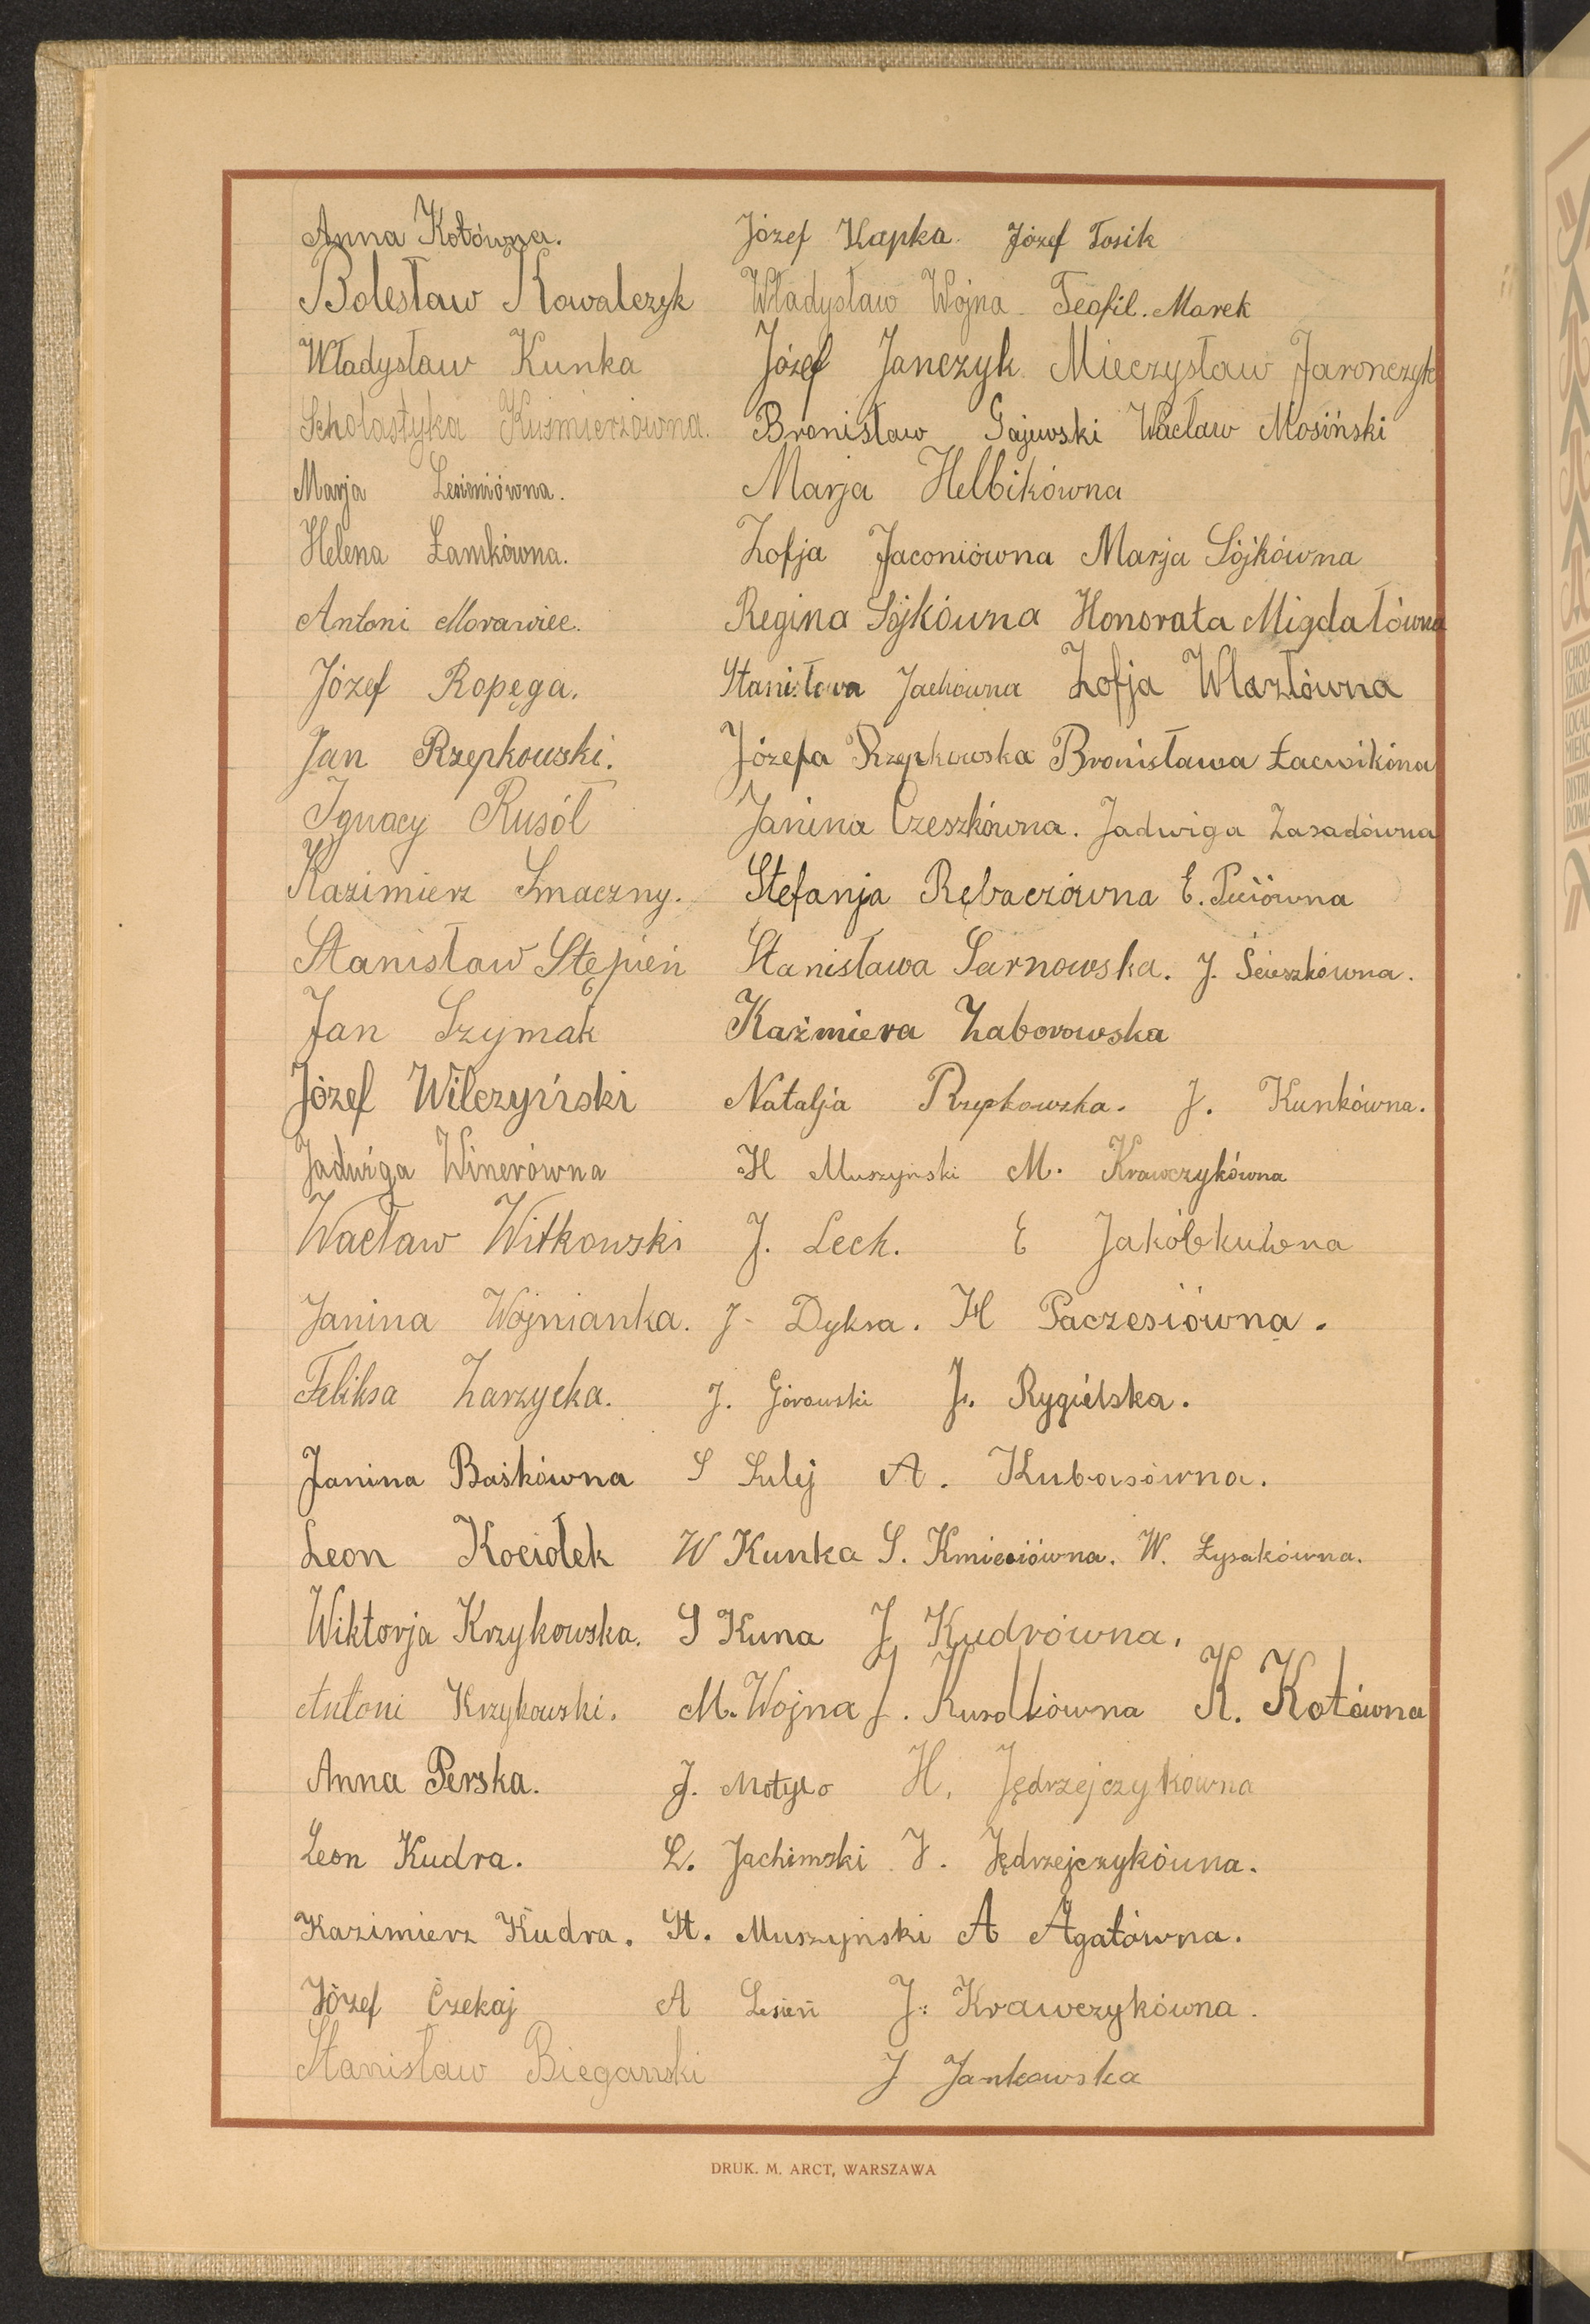 Anna Kotówna. Józef Kapka. Józef Tosik
Bolesław Kowalczyk Władysław Wojna Teofil. Marek
Władysław Kunka Józef Janczyk Mieczysław Jaronczyk
Scholastyka Kuśmierzówna. Bronisław Gajewski Wacław Mosiński
Marja Lesieniówna. Marja Helbikówna
Helena Łamkówna. Zofja Jaconiówna Marja Sójkówna
Antoni Morawiec. Regina Sójkówna Honorata Migdałówna
Józef Ropęga. Stanisława Jachówna Zofja Wlazłówna
Jan Rzepkowski. Józefa Rzepkowska Bronisława
Ignacy Rusół Janina Czeszkówna. Jadwiga Zasadówna
Kazimierz Smaczny. Stefanja Rębaczówna E.
Stanisław Stępień Stanisława Sarnowska. J. Ścieszkówna.
Jan Szymak Kaźmiera Zaborowska
Józef Wilczyński Natalja Rzepkowska. J. Kunkówna.
Jadwiga Winerówna H Muszyński M. Krawczykówna
Wacław Witkowski J. Lech. E Jakóbkuwna
Janina Wojnianka. J. Dyksa. H Paczesiówna.
Feliksa Zarzycka. J. Górowski J. Rygielska.
Janina Baśkówna S Sulej A. Kubasówna.
Leon Kociołek W Kunka S. Kmieciówna. W. Łysakówna.
Wiktorja Krzykowska. S Kuna J Kudrówna.
Antoni Krzykowski. M. Wojna J. K. Kotówna
Anna Perska. J. Motyło H. Jędrzejczykówna
Leon Kudra. L. Jachimski J. Jędrzejczykówna.
Kazimierz Kudra. St. Muszyński A Agatówna.
Józef Czekaj A Lesień J: Krawczykówna.
Stanisław Biegański J Jankowska
DRUK. M. ARCT, WARSZAWA